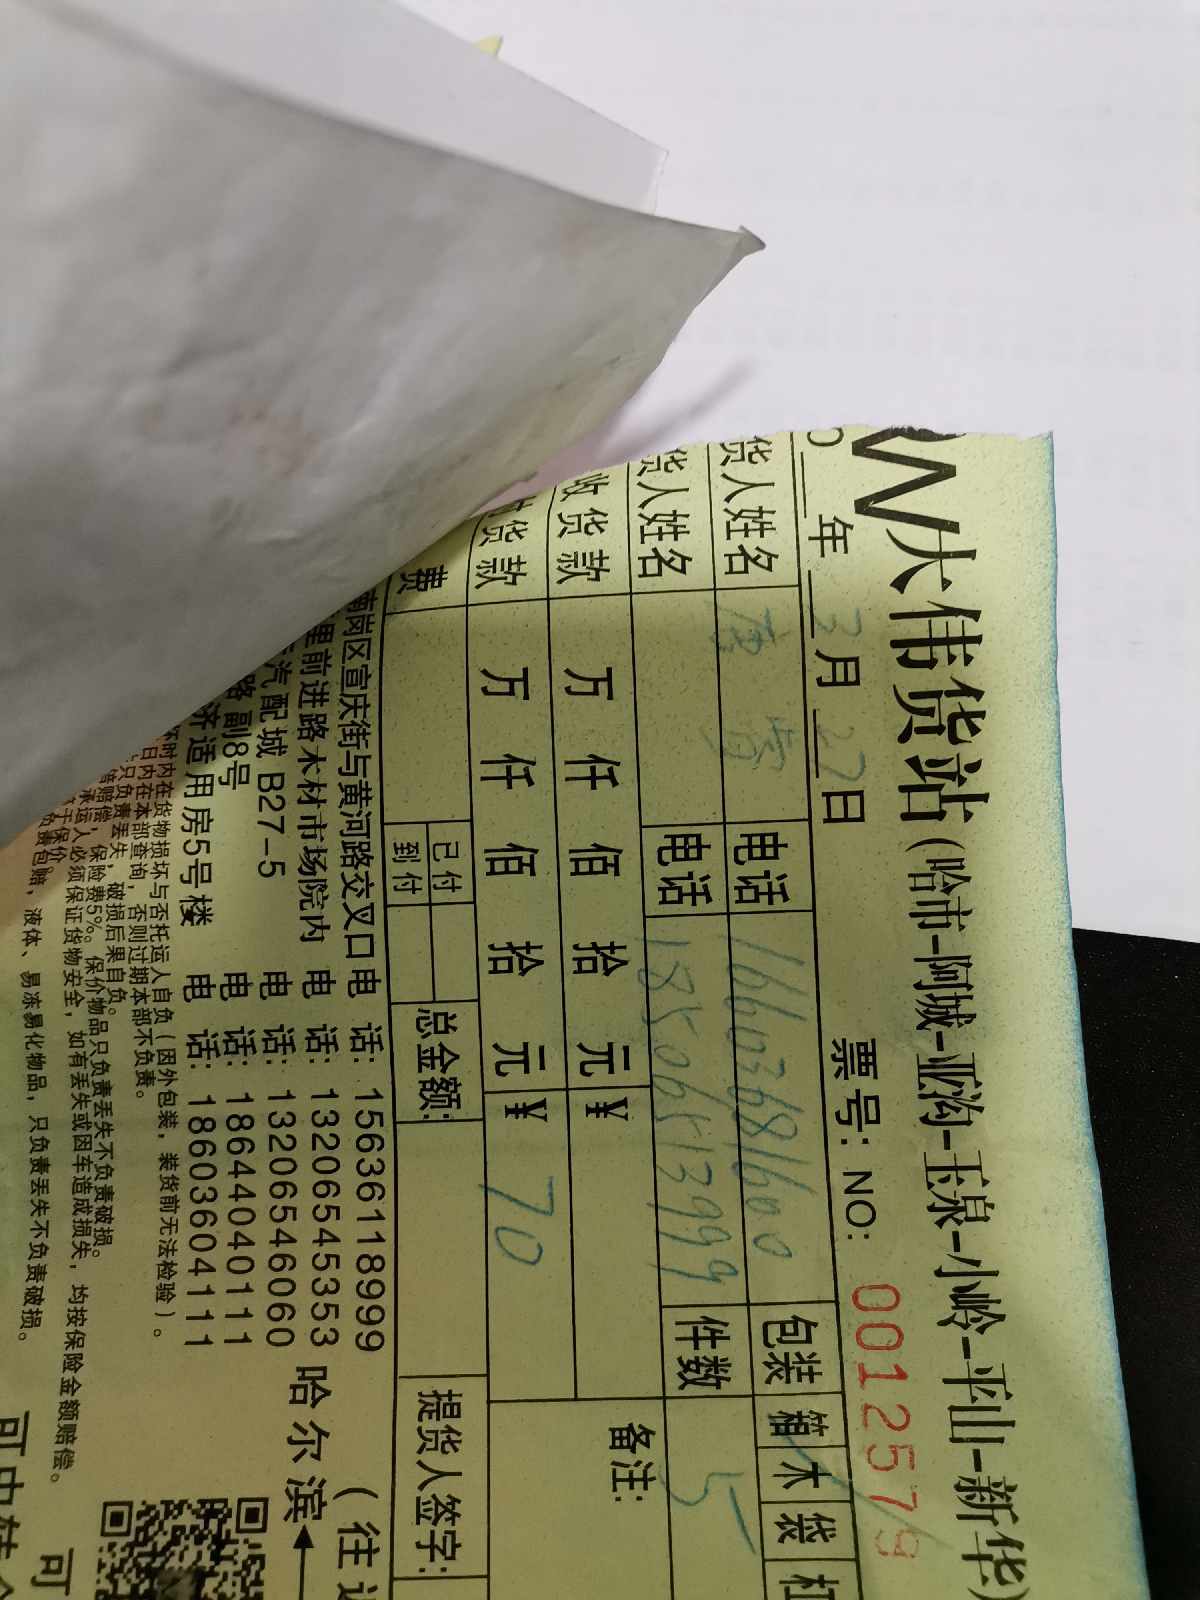 大伟货站(哈市-阿城-亚沟-玉泉-小岭-平山-新华)
年 3 月 27 日 票号: NO: 0012579
货人姓名 电话 16603681600 包装 箱 木 袋
货人姓名 电话 18506513999 件数 5
收货款 万 仟 佰 拾 元 ¥ 备注:
货款 万 仟 佰 拾 元 ¥ 70
费 已付 到付 总金额: 提货人签字:
南岗区宣庆街与黄河路交叉口 电 话: 15636118999
里前进路木材市场院内 电 话: 13206545353 哈尔滨
汽配城 B27-5 电 话: 13206546060
路 副8号 电 话: 18644040111
济适用房5号楼 电 话: 18603604111
时内在货物损坏与否托运人自负(因外包装,装货前无法检验)。
日内在本部查询,否则过期本部不负责。
只负责丢失,破损后果自负。
赔偿,保险费5%。保价物品只负责丢失不负责破损。
承运人必须保证货物安全,如有丢失或因车造成损失,均按保险金额赔偿。
负责包赔,液体、易冻易化物品,只负责丢失不负责破损。
(往
可